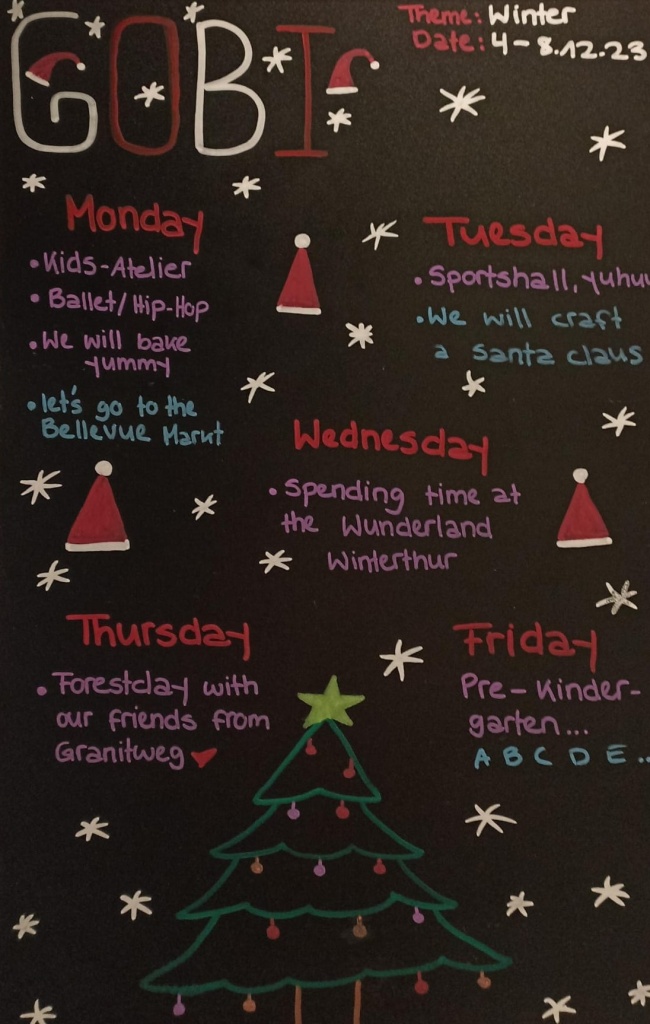 GOBI
Theme: Winter
Date: 4-8.12.23
Monday
• Kids-Atelier
• Ballet/Hip-Hop
• We will bake
yummy
• let's go to the
Bellevue Markt
Tuesday
• Sportshall, yuhuu
• We will craft
a Santa claus
Wednesday
• Spending time at
the Wunderland
Winterthur
Thursday
• Forestday with
our friends from
Granitweg
Friday
Pre-Kinder-
garten...
A B C D E...